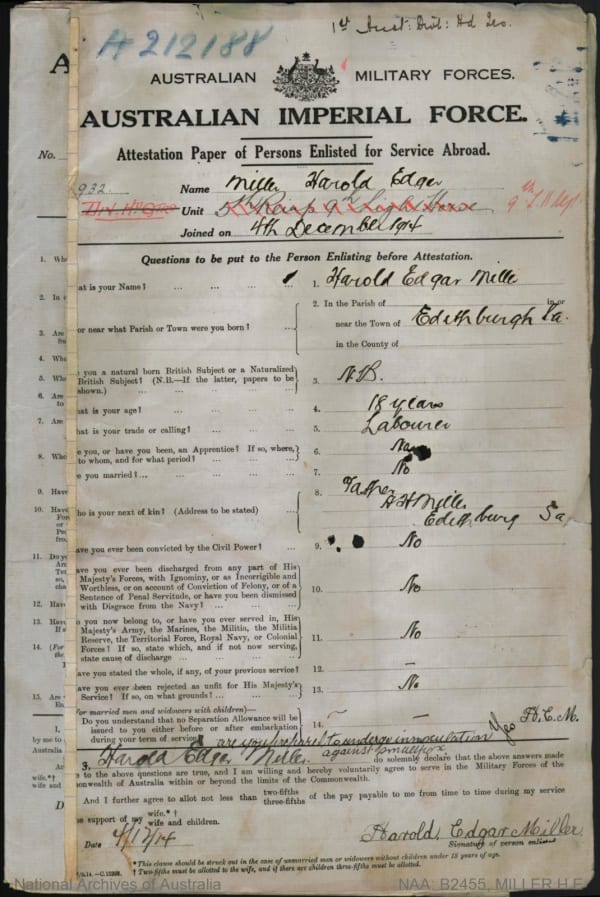 A 212188
1st Aust: Divl: Hd Qrs.
AUSTRALIAN MILITARY FORCES.
AUSTRALIAN IMPERIAL FORCE.
Attestation Paper of Persons Enlisted for Service Abroad.
No.
932.
Name Miller Harold Edgar
Unit 9th Light Horse
Joined on 4th December 1914
Questions to be put to the Person Enlisting before Attestation.
hat is your Name? ... ... ... ... 1. Harold Edgar Miller
or near what Parish or Town were you born? ... 2. In the Parish of in or
near the Town of Edithburgh Sa.
in the County of
e you a natural born British Subject or a Naturalized
British Subject? (N.B.—If the latter, papers to be
shown.) ... 3. N.B.
hat is your age? ... 4. 18 years
hat is your trade or calling? ... 5. Labourer
e you, or have you been, an Apprentice? If so, where,
to whom, and for what period? ... 6.
e you married? ... 7. No
ho is your next of kin? (Address to be stated) ... 8. Father
H Miller
Edithburg Sa
ave you ever been convicted by the Civil Power? ... 9. No
ave you ever been discharged from any part of His
Majesty's Forces, with Ignominy, or as Incorrigible and
Worthless, or on account of Conviction of Felony, or of a
Sentence of Penal Servitude, or have you been dismissed
with Disgrace from the Navy? ... 10. No
o you now belong to, or have you ever served in, His
Majesty's Army, the Marines, the Militia, the Militia
Reserve, the Territorial Force, Royal Navy, or Colonial
Forces? If so, state which, and if not now serving,
state cause of discharge ... 11. No
ave you stated the whole, if any, of your previous service? 12. —
ave you ever been rejected as unfit for His Majesty's
Service? If so, on what grounds? ... 13. No
For married men and widowers with children)—
Do you understand that no Separation Allowance will be
issued to you either before or after embarkation
during your term of service? 14. — —
are you prepared to undergo innoculation
against smallpox Yes H.E.M.
3. Harold Edgar Miller do solemnly declare that the above answers made
e to the above questions are true, and I am willing and hereby voluntarily agree to serve in the Military Forces of the
monwealth of Australia within or beyond the limits of the Commonwealth.
And I further agree to allot not less than two-fifths
three-fifths of the pay payable to me from time to time during my service
e support of my wife.* †
wife and children.
Date 4/12/14
Harold, Edgar Miller
Signature of person enlisted
*This clause should be struck out in the case of unmarried men or widowers without children under 18 years of age.
† Two-fifths must be allotted to the wife, and if there are children three-fifths must be allotted.
National Archives of Australia
NAA: B2455, MILLER H E